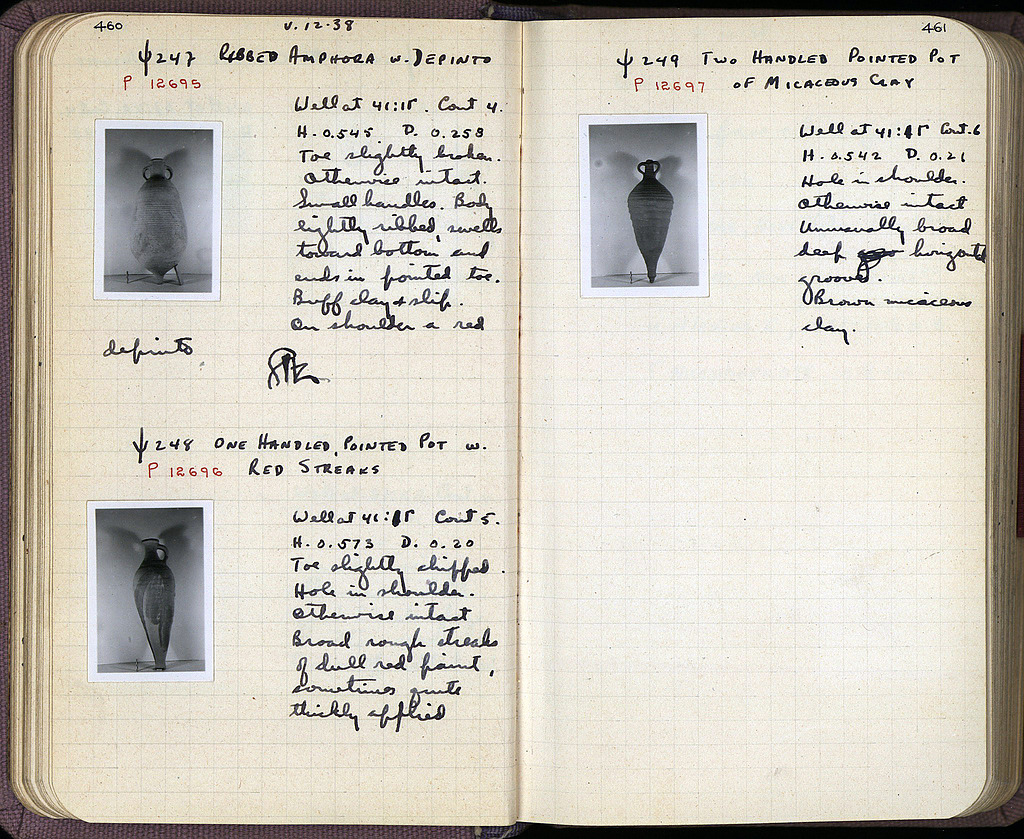 460
V.12.38
Ψ247 RIBBED AMPHORA W. DEPINTO
P 12695
Well at 41:ΙΓ. Cont 4.
H. 0.545 D. 0.258
Toe slightly broken.
Otherwise intact.
Small handles. Body
lightly ribbed, swells
toward bottom and
ends in pointed toe.
Buff clay & slip.
On shoulder a red
depinto
Ψ248 ONE HANDLED, POINTED POT W.
P 12696 RED STREAKS
Well at 41:ΙΓ Cont 5.
H. 0.573 D. 0.20
Toe slightly chipped.
Hole in shoulder.
Otherwise intact
Broad rough streaks
of dull red paint,
sometimes quite
thickly applied
461
Ψ249 TWO HANDLED POINTED POT
P 12697 OF MICACEOUS CLAY
Well at 41:ΙΓ Cont. 6
H. 0.542 D. 0.21
Hole in shoulder.
Otherwise intact
Unusually broad
deep horizontal
grooves.
Brown micaceous
clay.